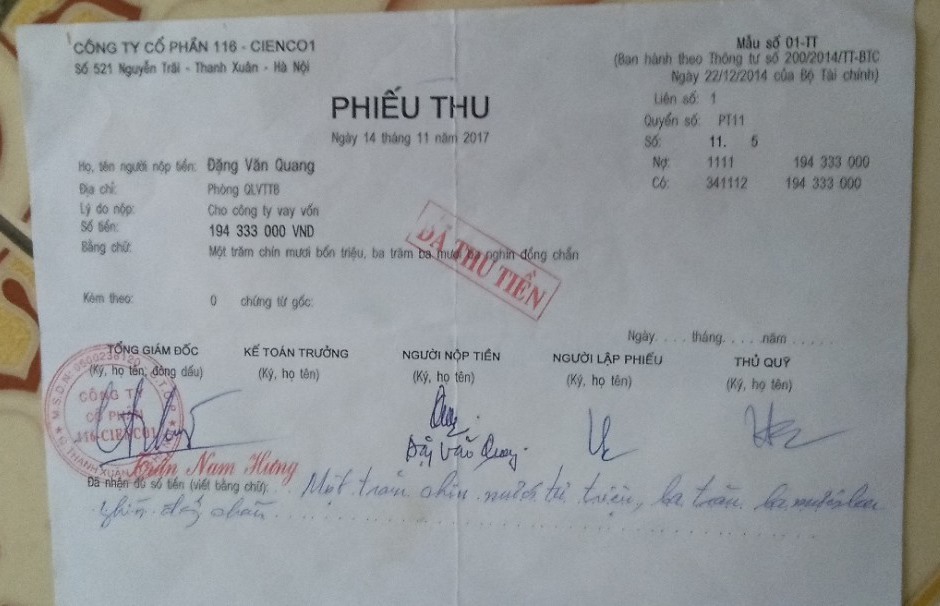 CÔNG TY CỔ PHẦN 116 - CIENCO1
Số 521 Nguyễn Trãi - Thanh Xuân - Hà Nội
Mẫu số 01-TT
(Ban hành theo Thông tư số 200/2014/TT-BTC
Ngày 22/12/2014 của Bộ Tài chính)
PHIẾU THU
Ngày 14 tháng 11 năm 2017
Liên số: 1
Quyển số: PT11
Số: 11. 5
Nợ: 1111 194 333 000
Có: 341112 194 333 000
Họ, tên người nộp tiền: Đặng Văn Quang
Địa chỉ: Phòng QLVTTB
Lý do nộp: Cho công ty vay vốn
Số tiền: 194 333 000 VND
Bằng chữ: Một trăm chín mươi bốn triệu, ba trăm ba mươi ba nghìn đồng chẵn
ĐÃ THU TIỀN
Kèm theo: 0 chứng từ gốc:
Ngày.... tháng..... năm .....
TỔNG GIÁM ĐỐC KẾ TOÁN TRƯỞNG NGƯỜI NỘP TIỀN NGƯỜI LẬP PHIẾU THỦ QUỸ
(Ký, họ tên, đóng dấu) (Ký, họ tên) (Ký, họ tên) (Ký, họ tên) (Ký, họ tên)
CÔNG TY
CỔ PHẦN
116-CIENCO1
THANH XUÂN
Đặng Văn Quang
Trần Nam Hưng
Đã nhận đủ số tiền (viết bằng chữ): Một trăm chín mươi tư triệu, ba trăm ba mươi ba
nghìn đồng chẵn